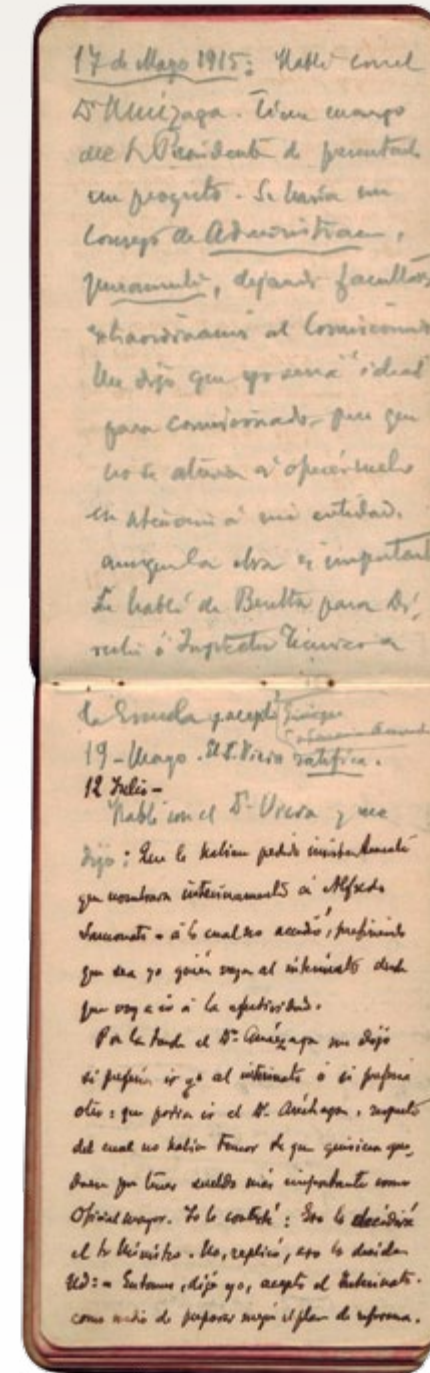 17 de Mayo 1915: Hablé con el
Dr Amézaga. Tiene encargo
del Sr Presidente de presentarle
un proyecto. Se haría un
Consejo de Administracion,
puramente, dejando facultades
extraordinarias al Comisionado
Me dijo que yo sería "ideal"
para comisionado, pero que
no se atrevía a ofrecérmelo
en atención á mi entidad.
aunque la obra es importante
Le hablé de Beretta para Di-
rector ó Inspector Técnico a
la Escuela y aceptó
19-Mayo. El D. Viera ratifica.
12 Julio-
Hablé con el Dr. Viera y me
dijo: Que le habian pedido insistentemente
que nombrara interinamente á Alfredo
á lo cual no accedió, prefiriendo
que sea yo quién vaya al interinato desde
que voy a ir á la efectividad.
Por la tarde el Dr. Amézaga me dijo
si prefería ir yo al interinato ó si prefería
otro: que podría ir el Dr. Aréchaga, respecto
del cual no habia temor de que quisiera que-
darse por tener sueldo más importante como
Oficial mayor. Yo le contesté: Eso lo decidirá
el Sr Ministro. No, replicó, eso lo decide
Ud:- Entonces, dije yo, acepto el Interinato.
como medio de preparar mejor el plan de reforma.